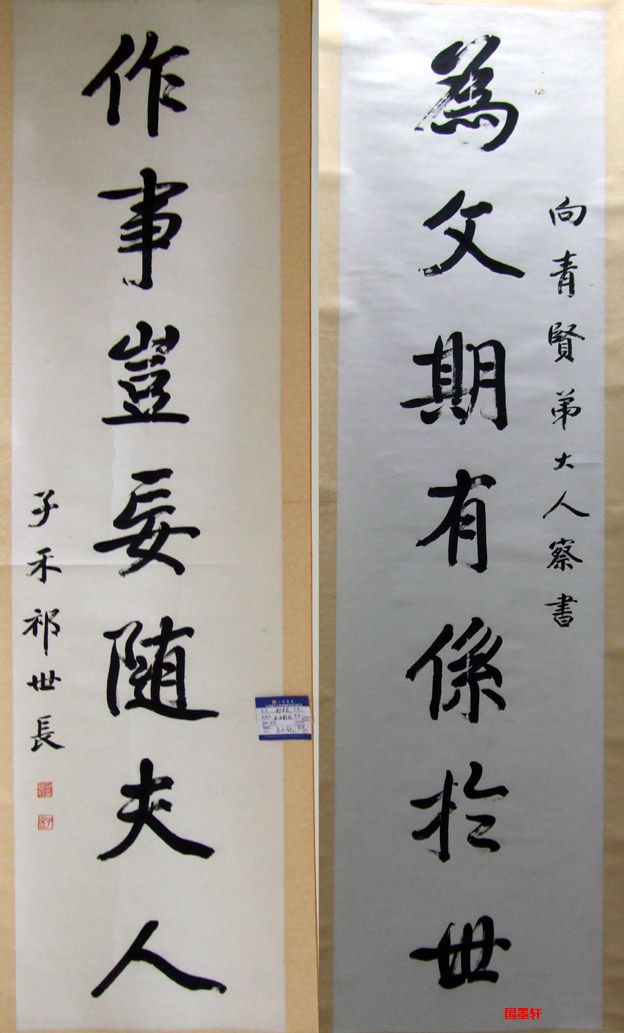 向青賢弟大人察書
為文期有係於世
作事豈妄随夫人
子禾祁世長
国墨轩